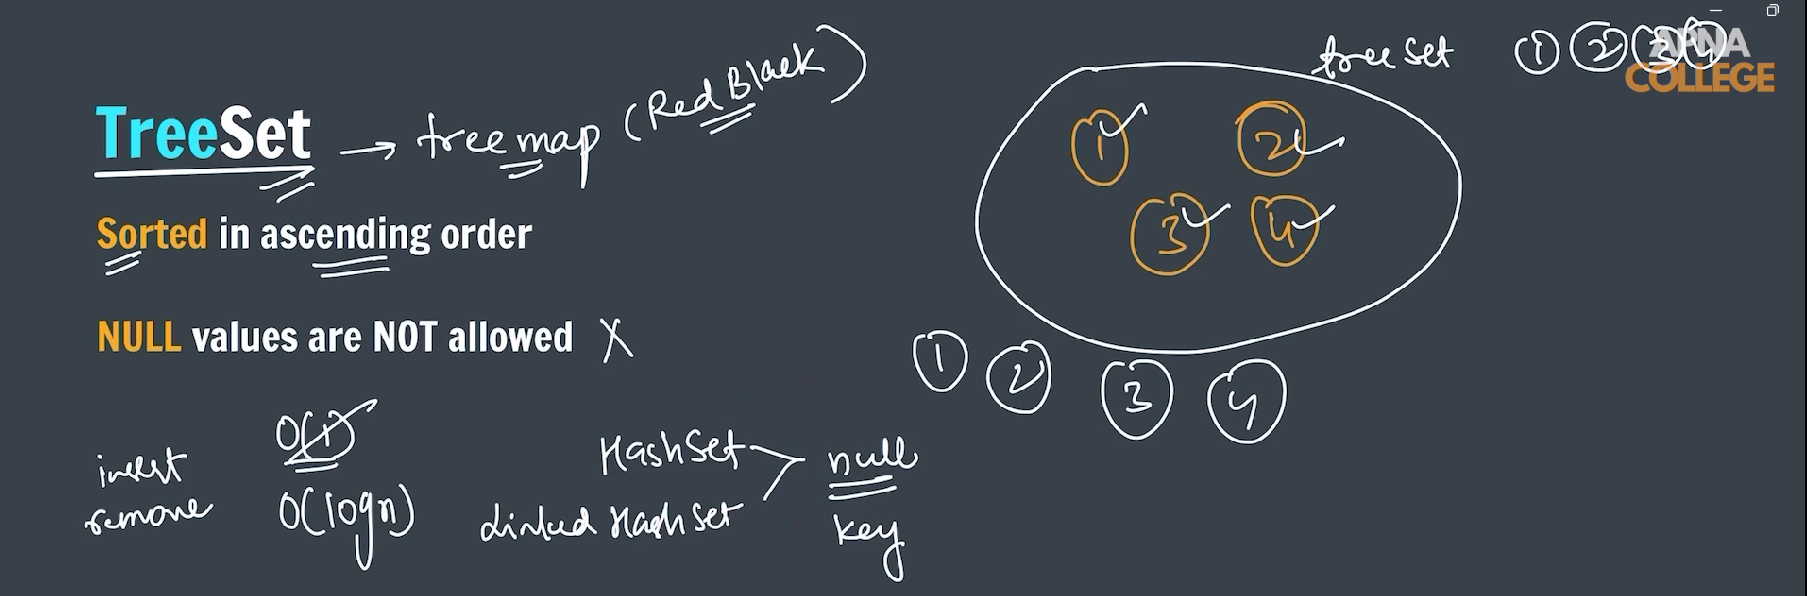 TreeSet → treemap (Red Black)
Sorted in ascending order
NULL values are NOT allowed X
O(1)
insert
remove O(logn)
HashSet
Linked HashSet
null
key
treeSet 1 2 3 4
APNA
COLLEGE
1 2
3 4
1 2 3 4